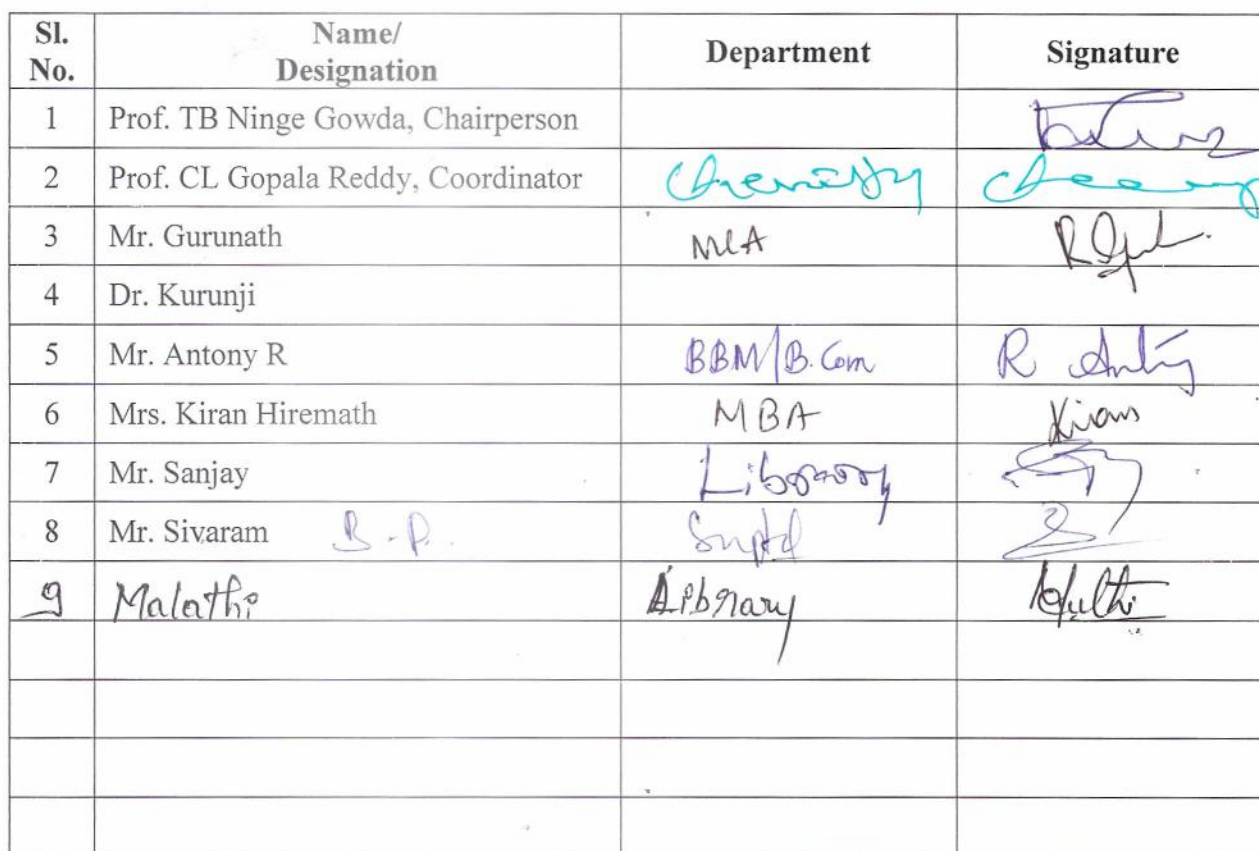 Sl. No. Name/ Designation Department Signature
1 Prof. TB Ninge Gowda, Chairperson
2 Prof. CL Gopala Reddy, Coordinator Chemistry
3 Mr. Gurunath MCA
4 Dr. Kurunji
5 Mr. Antony R BBM/B.Com R Antony
6 Mrs. Kiran Hiremath MBA Kiran
7 Mr. Sanjay Library
8 Mr. Sivaram B.P. Suptd
9 Malathi Library